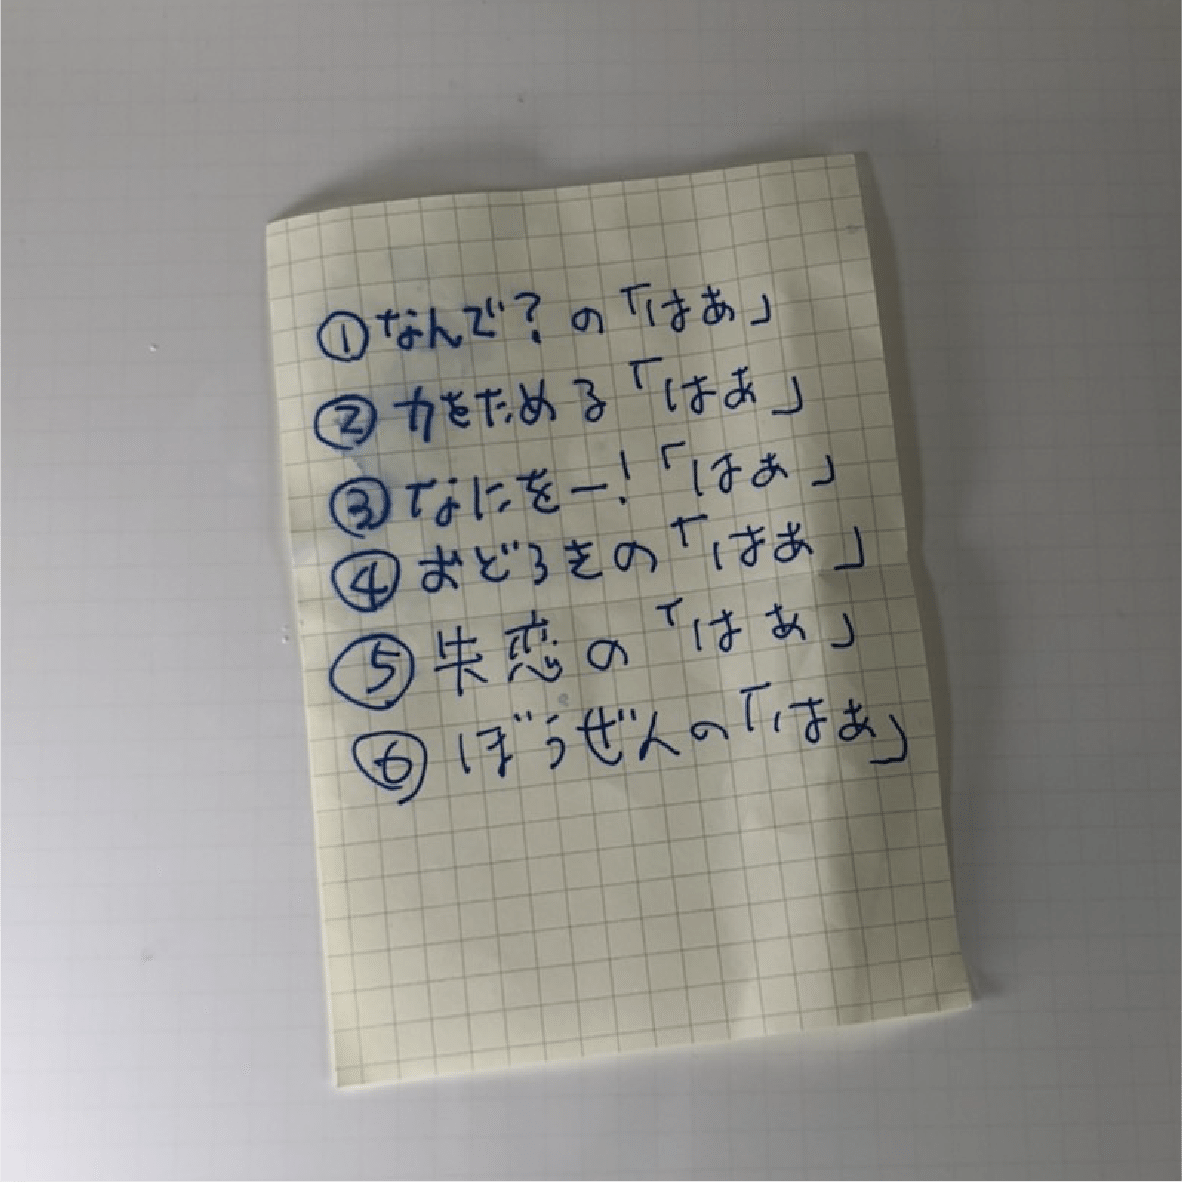 ①なんで？の「はあ」
②力をためる「はあ」
③なにをー！「はあ」
④おどろきの「はあ」
⑤失恋の「はあ」
⑥ぼうぜんの「はあ」